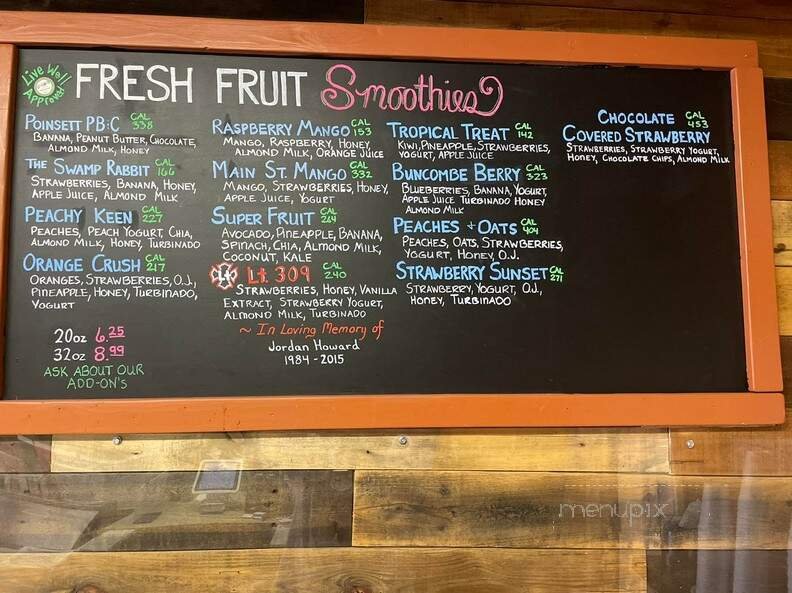 Live Well Approved
FRESH FRUIT Smoothies
POINSETT PB:C CAL 338
BANANA, PEANUT BUTTER, CHOCOLATE,
ALMOND MILK, HONEY
THE SWAMP RABBIT CAL 166
STRAWBERRIES, BANANA, HONEY,
APPLE JUICE, ALMOND MILK
PEACHY KEEN CAL 227
PEACHES, PEACH YOGURT, CHIA,
ALMOND MILK, HONEY, TURBINADO
ORANGE CRUSH CAL 217
ORANGES, STRAWBERRIES, O.J.,
PINEAPPLE, HONEY, TURBINADO,
YOGURT
20oz 6.25
32oz 8.99
ASK ABOUT OUR
ADD-ON'S
RASPBERRY MANGO CAL 153
MANGO, RASPBERRY, HONEY,
ALMOND MILK, ORANGE JUICE
MAIN ST. MANGO CAL 332
MANGO, STRAWBERRIES, HONEY,
APPLE JUICE, YOGURT
SUPER FRUIT CAL 264
AVOCADO, PINEAPPLE, BANANA,
SPINACH, CHIA, ALMOND MILK,
COCONUT, KALE
LT. 309 CAL 240
STRAWBERRIES, HONEY, VANILLA
EXTRACT, STRAWBERRY YOGURT,
ALMOND MILK, TURBINADO
~ In Loving Memory of
Jordan Howard
1984 - 2015
TROPICAL TREAT CAL 142
KIWI, PINEAPPLE, STRAWBERRIES,
YOGURT, APPLE JUICE
BUNCOMBE BERRY CAL 323
BLUEBERRIES, BANANA, YOGURT,
APPLE JUICE TURBINADO HONEY
ALMOND MILK
PEACHES + OATS CAL 404
PEACHES, OATS, STRAWBERRIES,
YOGURT, HONEY, O.J.
STRAWBERRY SUNSET CAL 271
STRAWBERRY, YOGURT, O.J.,
HONEY, TURBINADO
CHOCOLATE CAL 453
COVERED STRAWBERRY
STRAWBERRIES, STRAWBERRY YOGURT,
HONEY, CHOCOLATE CHIPS, ALMOND MILK
menupix